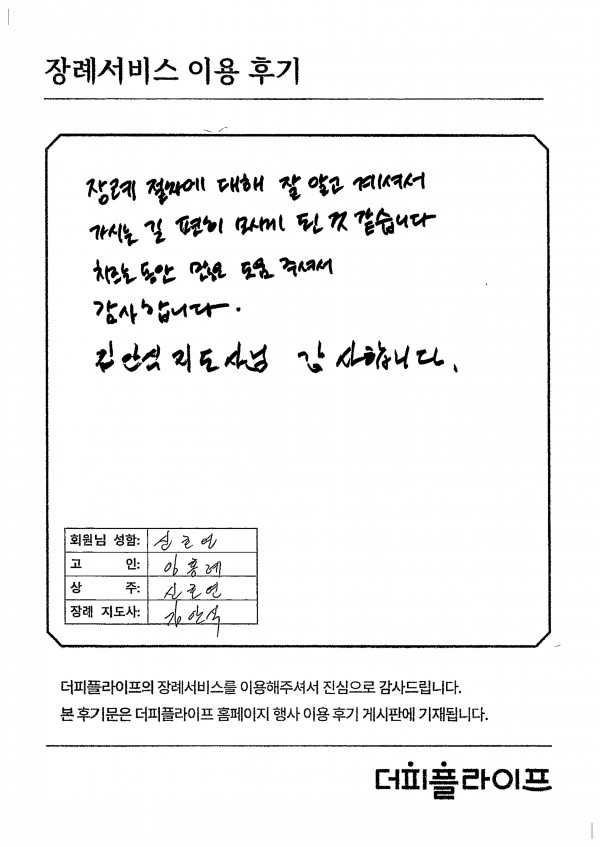 장례서비스 이용 후기
장례 절차에 대해 잘 알고 계셔서
가시는 길 편히 모시게 된 것 같습니다
치르는 동안 많은 도움 주셔서
감사합니다.
김안식 지도사님 감사합니다.
회원님 성함: 신호연
고 인: 양흥례
상 주: 신호연
장례 지도사: 김안식
더피플라이프의 장례서비스를 이용해주셔서 진심으로 감사드립니다.
본 후기문은 더피플라이프 홈페이지 행사 이용 후기 게시판에 기재됩니다.
더피플라이프